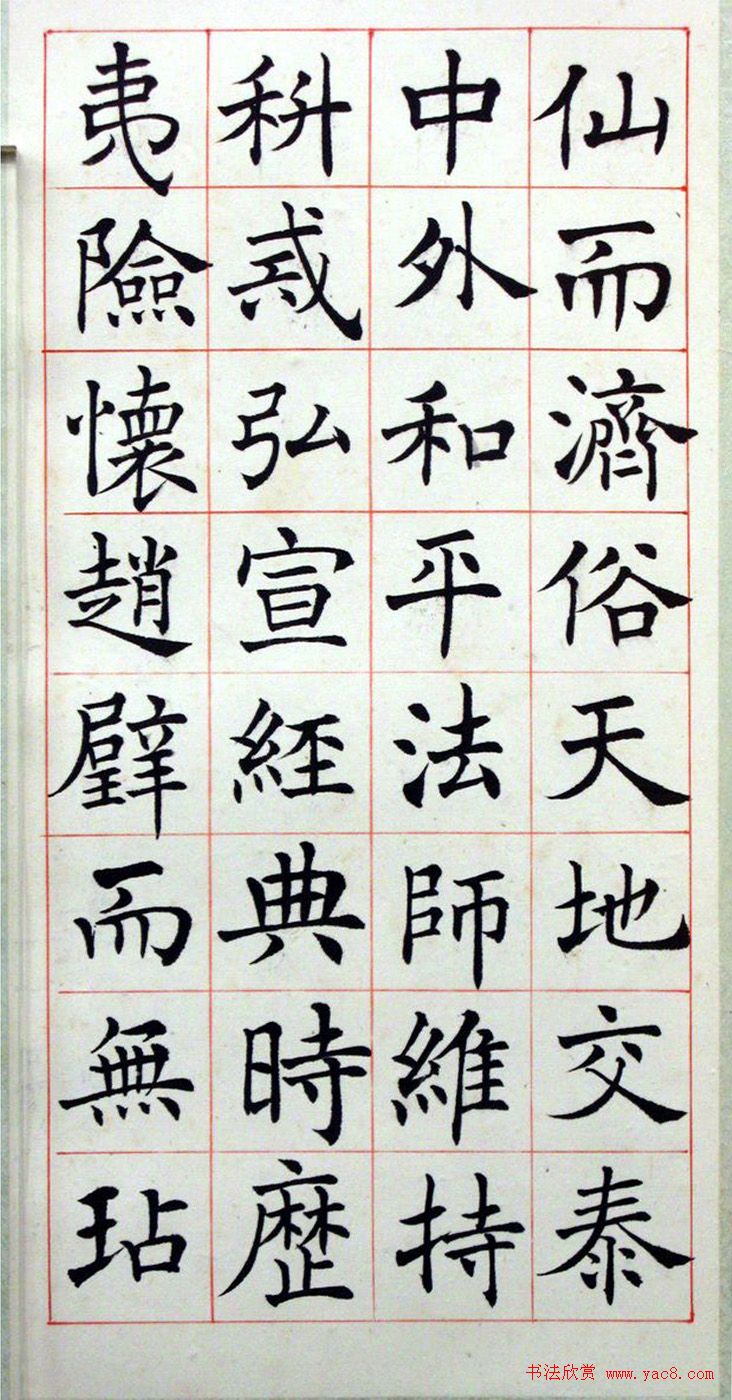 仙而濟俗天地交泰
中外和平法師維持
科戒弘宣經典時歷
夷險懷趙璧而無玷
书法欣赏 www.yac8.com